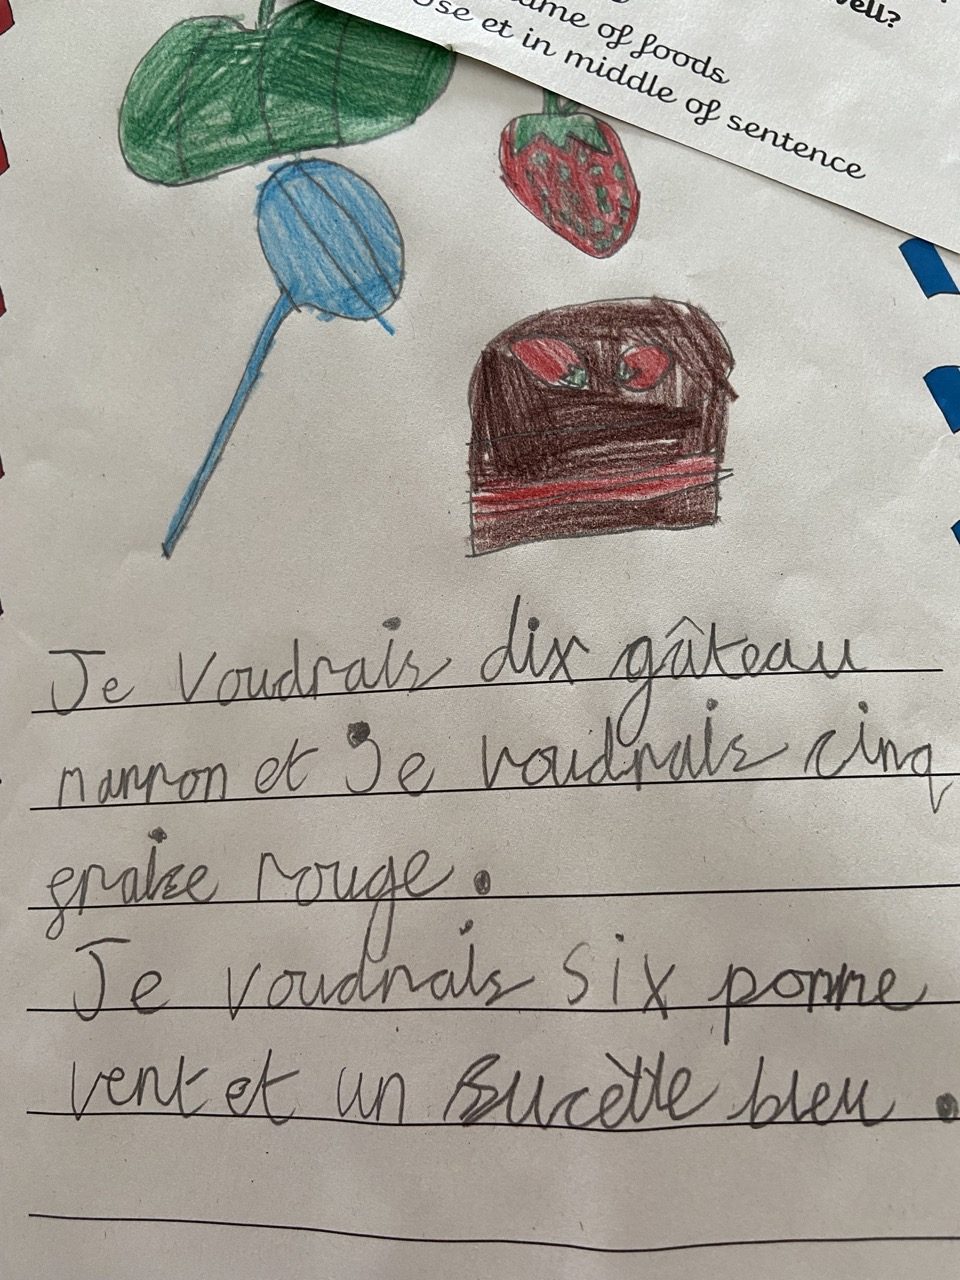 well?
name of foods
Use et in middle of sentence
Je voudrais dix gâteau
marron et Je voudrais cinq
fraise rouge.
Je voudrais six pomme
vert et un sucètte bleu.